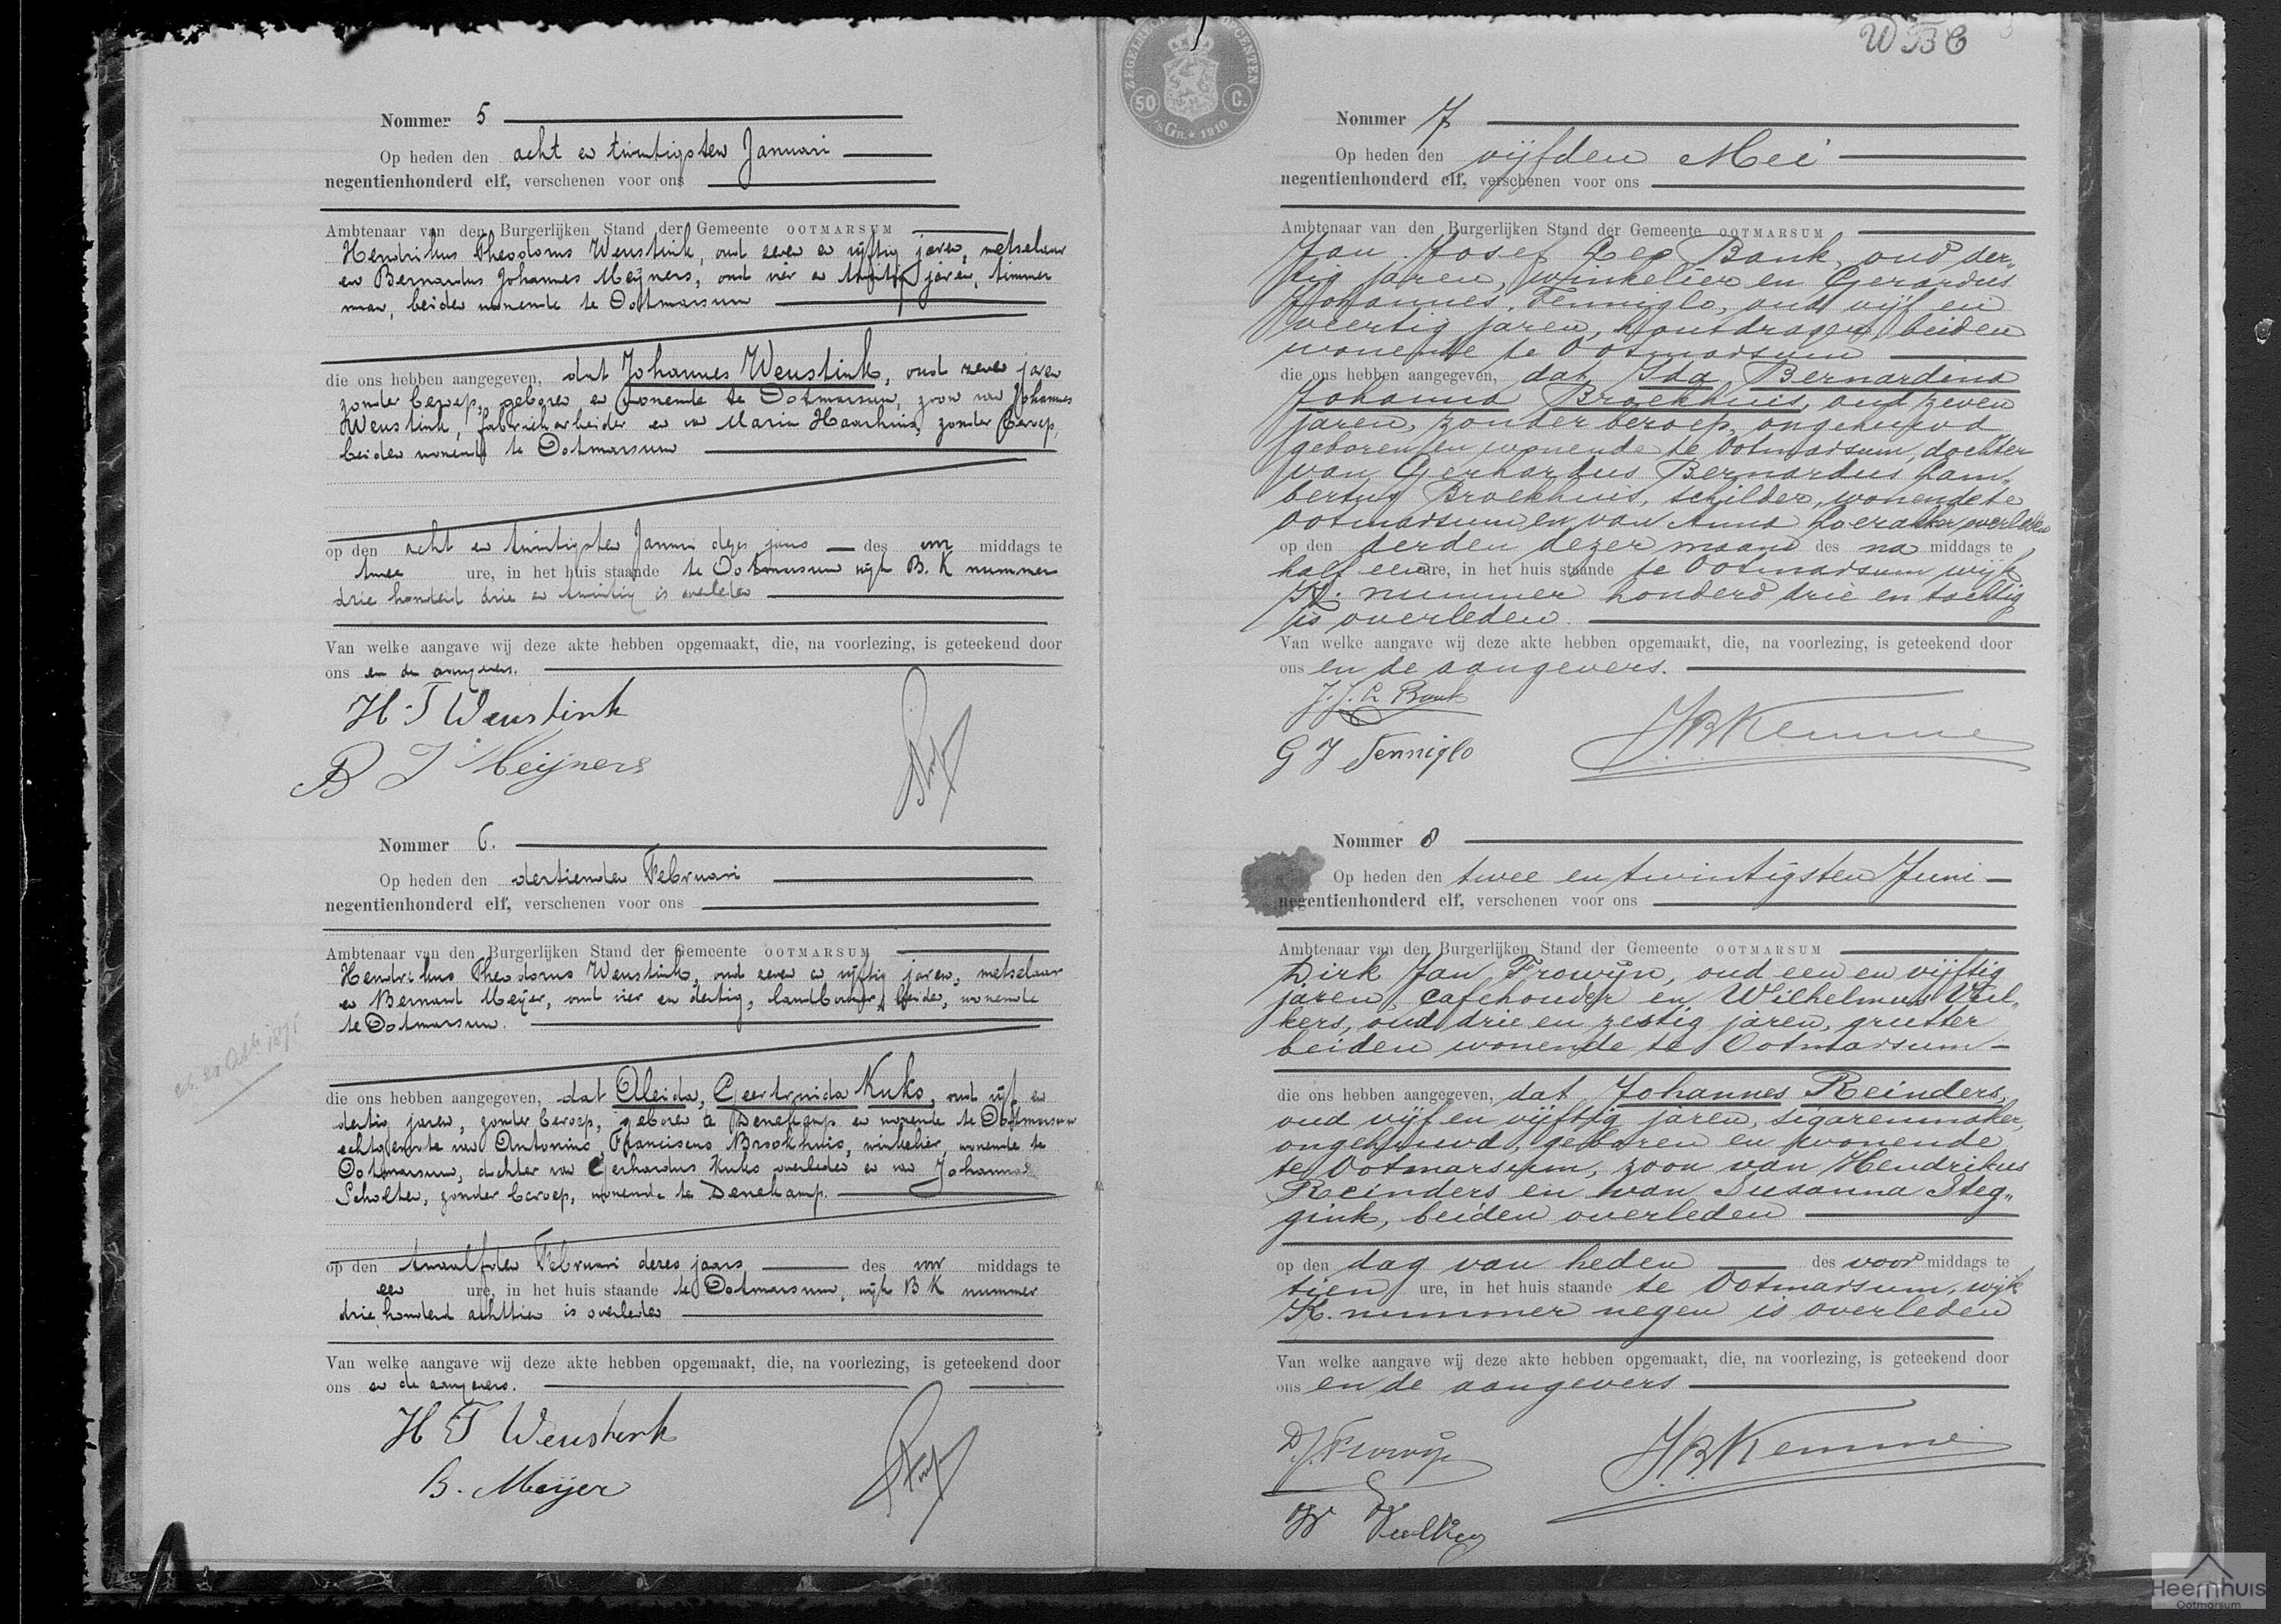 Nommer 5
Op heden den acht en twintigsten Januari
negentienhonderd elf, verschenen voor ons
Ambtenaar van den Burgerlijken Stand der Gemeente OOTMARSUM
Hendrikus Theodorus Weustink, oud een en vijftig jaren, metselaar
en Bernardus Johannes Meijners, oud vier en twintig jaren, timmer
man, beiden wonende te Ootmarsum
die ons hebben aangegeven, dat Johannes Weustink, oud zeven jaren
zonder beroep, geboren en wonende te Ootmarsum, zoon van Johannes
Weustink, fabriekarbeider en van Maria Haarhuis, zonder beroep,
beiden wonende te Ootmarsum
op den acht en twintigsten Januari dezes jaars des voor middags te
twee ure, in het huis staande te Ootmarsum wijk B. K nummer
drie honderd drie en twintig is overleden
Van welke aangave wij deze akte hebben opgemaakt, die, na voorlezing, is geteekend door
ons en de aangevers.
H T Weustink
B J Meijners
Nommer 6.
Op heden den dertienden Februari
negentienhonderd elf, verschenen voor ons
Ambtenaar van den Burgerlijken Stand der Gemeente OOTMARSUM
Hendrikus Theodorus Weustink, oud een en vijftig jaren, metselaar
en Bernard Meijer, oud vier en dertig, landbouwer, beiden, wonende
te Ootmarsum.
die ons hebben aangegeven, dat Aleida, Geertruida Kuks, oud vijf en
dertig jaren, zonder beroep, geboren te Denekamp en wonende te Ootmarsum
echtgenote van Antonius, Franciscus Broekhuis, winkelier, wonende te
Ootmarsum, dochter van Gerhardus Kuks overleden en van Johanna
Scholten, zonder beroep, wonende te Denekamp.
op den twaalfden Februari dezes jaars des voor middags te
een ure, in het huis staande te Ootmarsum, wijk B K nummer
drie honderd achttien is overleden
Van welke aangave wij deze akte hebben opgemaakt, die, na voorlezing, is geteekend door
ons en de aangevers.
H T Weustink
B. Meijer
ZEGELRECHT OPCENTEN
50 C.
'sGR. 1910
W B C
Nommer 7
Op heden den vijfden Mei
negentienhonderd elf, verschenen voor ons
Ambtenaar van den Burgerlijken Stand der Gemeente OOTMARSUM
Jan Josef Leo Bank, oud der-
tig jaren, winkelier en Gerardus
Johannes, Tenniglo, oud vijf en
veertig jaren, houtdrager, beiden
wonende te Ootmarsum
die ons hebben aangegeven, dat Ida Bernardina
Johanna Broekhuis, oud zeven
jaren, zonder beroep, ongehuwd
geboren en wonende te Ootmarsum, dochter
van Gerhardus Bernardus Lam-
bertus Broekhuis, schilder, wonende te
Ootmarsum en van Anna overleden
op den derden dezer maand des na middags te
half een ure, in het huis staande te Ootmarsum wijk
K. nummer honderd drie en tachtig
is overleden.
Van welke aangave wij deze akte hebben opgemaakt, die, na voorlezing, is geteekend door
ons en de aangevers.
J. J. L Bank
G J Tenniglo
J.B. Kemme
Nommer 8
Op heden den twee en twintigsten Juni
negentienhonderd elf, verschenen voor ons
Ambtenaar van den Burgerlijken Stand der Gemeente OOTMARSUM
Dirk Jan Frowijn, oud een en vijftig
jaren, cafehouder en Wilhelmus Veel-
kers, oud drie en zestig jaren, grutter
beiden wonende te Ootmarsum
die ons hebben aangegeven, dat Johannes Reinders,
oud vijf en vijftig jaren, sigarenmaker,
ongehuwd, geboren en wonende
te Ootmarsum, zoon van Hendrikus
Reinders en van Susanna Steg-
gink, beiden overleden
op den dag van heden des voor middags te
tien ure, in het huis staande te Ootmarsum, wijk
K. nummer negen is overleden
Van welke aangave wij deze akte hebben opgemaakt, die, na voorlezing, is geteekend door
ons en de aangevers
D. J. Frowijn
J.B. Kemme
W Veelkers
Heemhuis
Ootmarsum